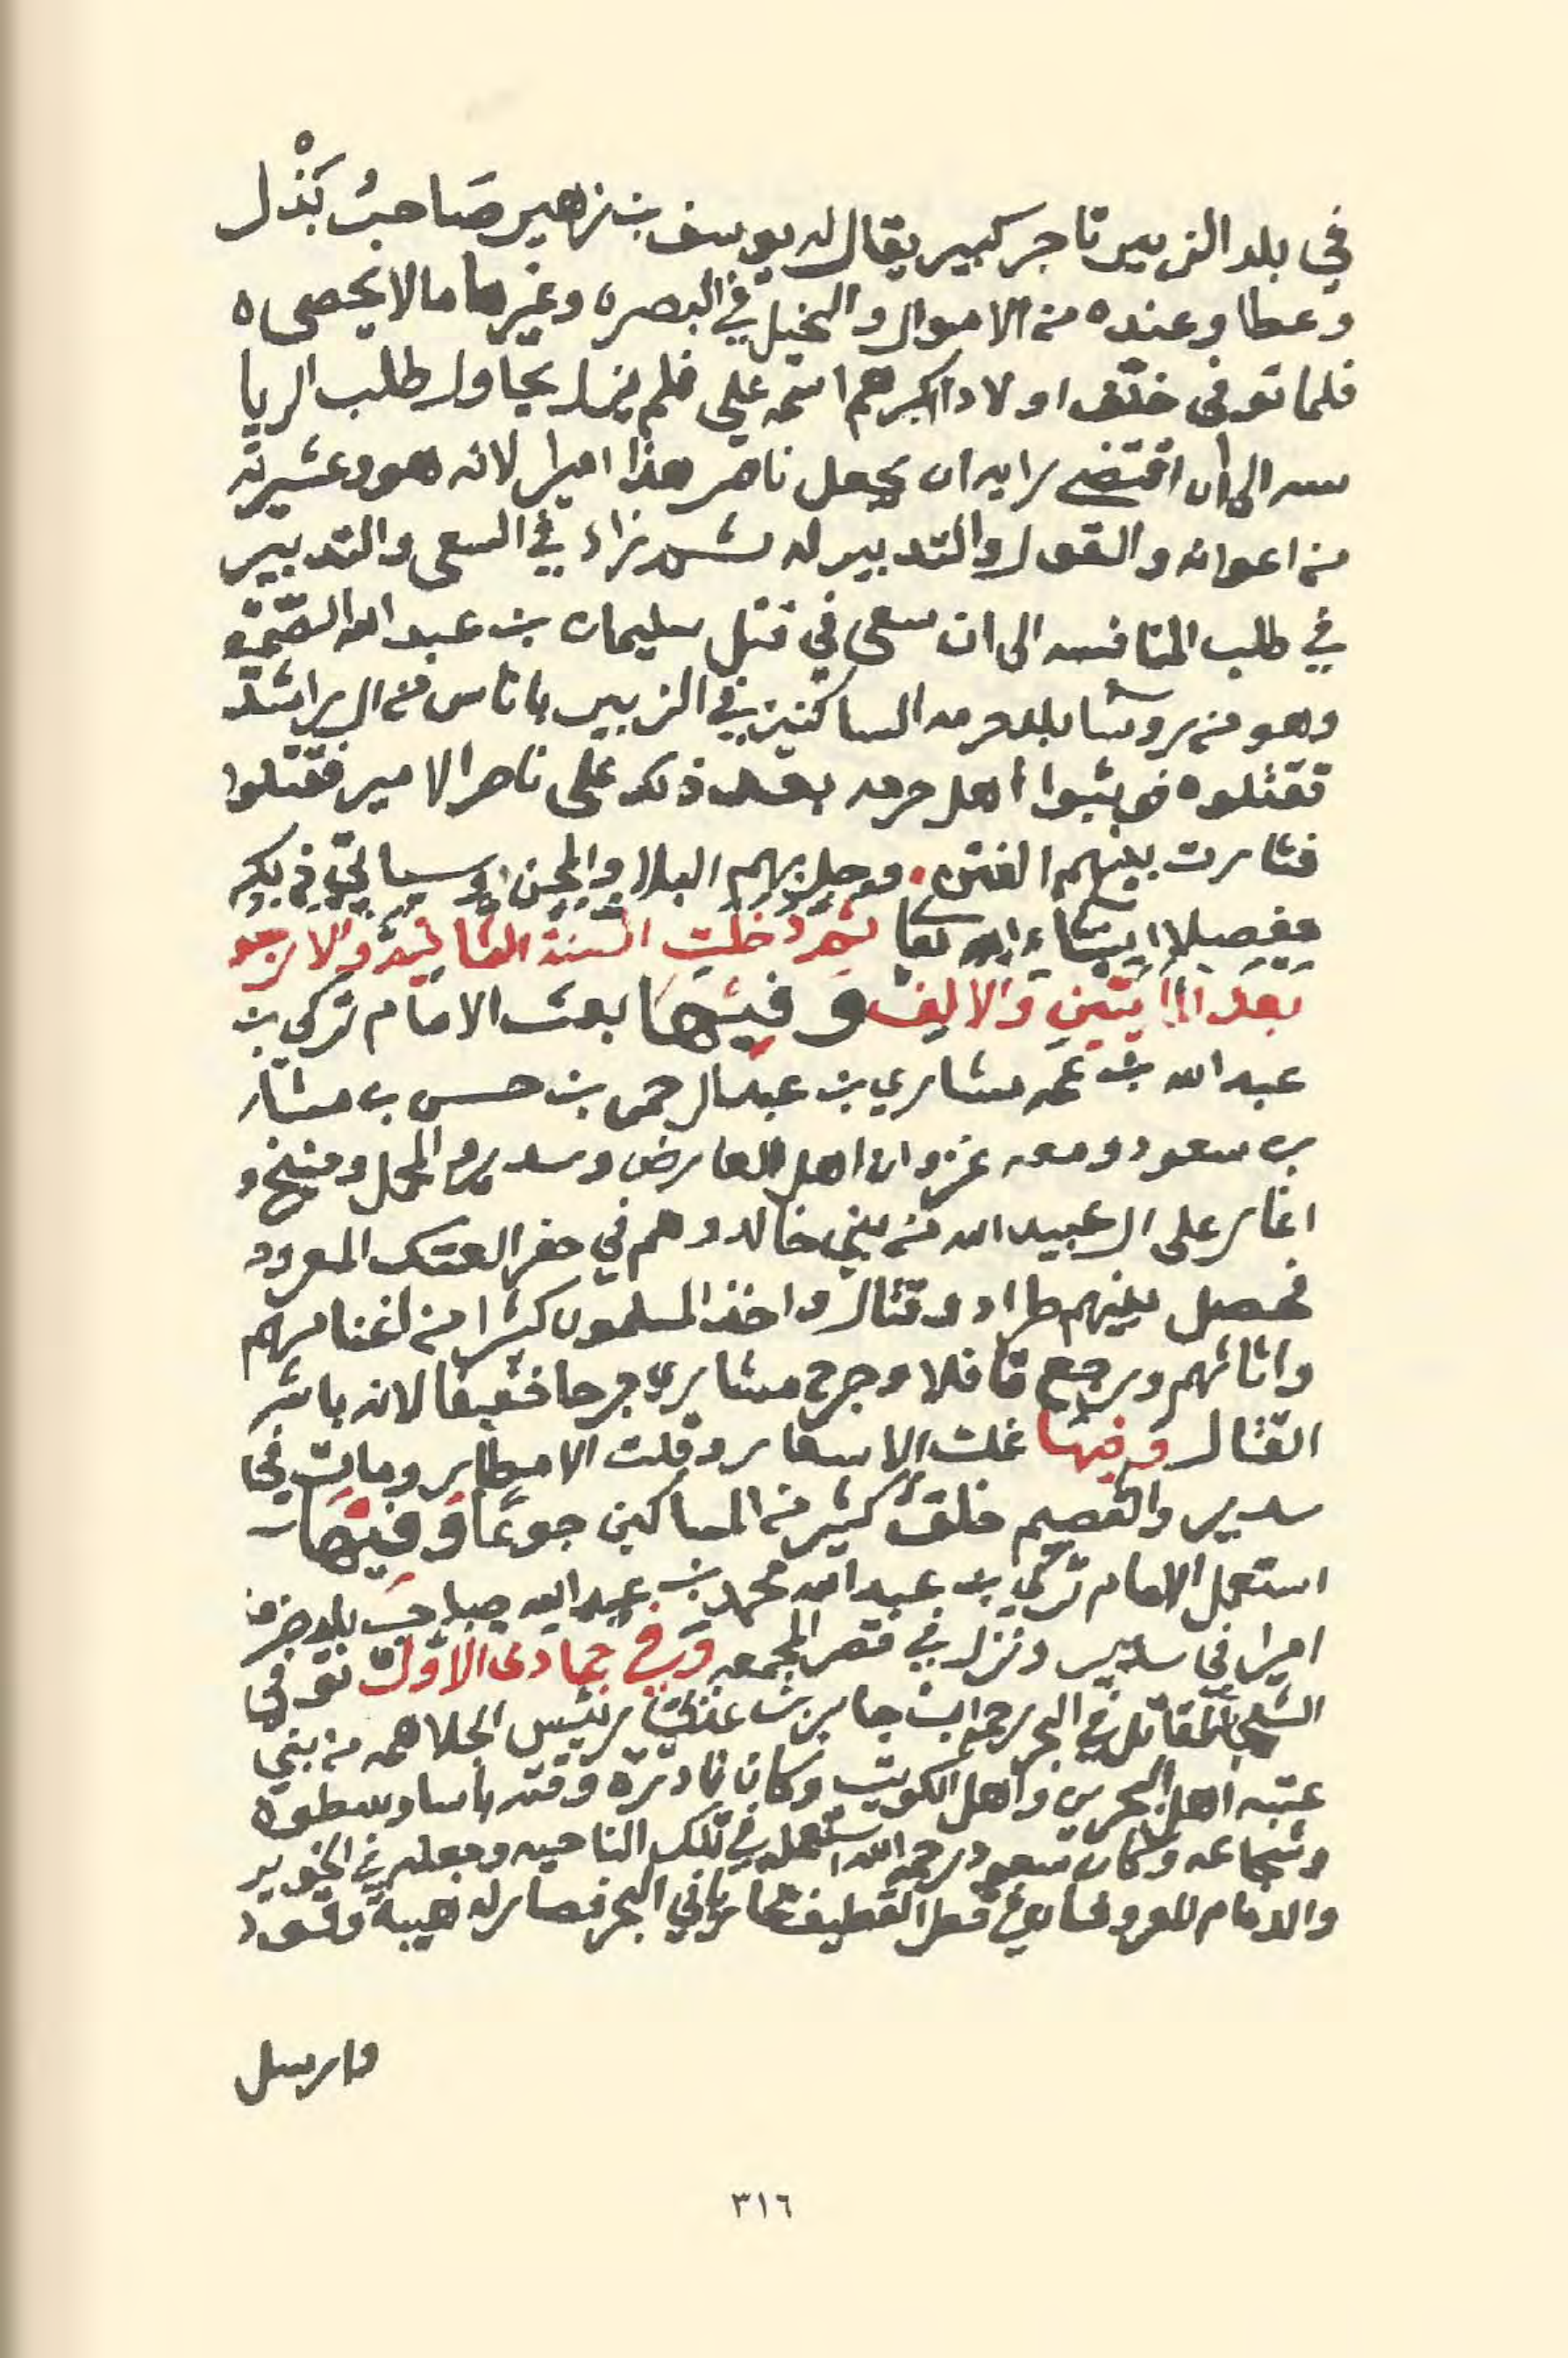 في بلد الزبير تاجر كبير يقال له يوسف بن زهير صَاحبُ بَذْل
وعطا وعنده من الاموال والنخيل في البصره وغيرها ما لا يحصى ه
فلما توفى خلّف اولادا اكبرهم اسمه علي فلم يزل يحاول طلب الريا
سه الى ان اقتضى رايه ان يجعل ناصر هذا اميرا لانه هو وعشيرته
من اعوانه والقول والتدبير له ثم زاد في السعى والتدبير
في طلب المنافسه الى ان سعى في قتل سليمان بن عبد الله الصميط
وهو من روسا بلد حرمه الساكنين في الزبير باناس من ال راشد
فقتلوه فوثبوا أهل حرمه بعد ذلك على ناصر الامير فقتلوا
فثارت بينهم الفتن وحل بهم البلا والمحن وسياتي ذكر
مفصلا ان شاء الله تعا ثم دخلت السنة الثانية والاربعو
بَعد المايتين والالف وَفيهَا بعث الامام تركي بن
عبد الله بن عمه مشاري بن عبد الرحمن بن حسن بن مشار
بن سعود ومعه غزوان اهل العارض وسدير والمحمل ومنيخ و
اغار على ال عبيد الله من بني خالد وهم في حفر العتك المعرود
فحصل بينهم طراد وقتال واخذ المسلمون كثيرا من اغنامهم
واثاثهم ورجع قافلا وجرح مشاري جرحا خفيفا لانه باشر
القتال وفيها غلت الاسعار وقلت الامطار ومات في
سدير والقصيم خلقٌ كثير من المساكين جوعًا وَفيهَا
استعمل الامام تركي بن عبد الله محمد بن عبد الله صاحب بلد ضرما
اميرا في سدير ونزل في قصر المجمعه وَفي جمادى الاول توفى
الشجاع المقاتل في البحر رحمه ابن جابر بن عذبي رييس الجلاهمه من بني
عتبه اهل البحرين واهل الكويت وكان نادرة وقته باسا وسطوه
وشجاعه وكان سعود رحمه الله استعمله في تلك الناحيه وجعله في الخوير
والدمام المعروفات في قطر القطيف محاربا في البحر فصار له هيبة وقود
وارسل
٣١٦